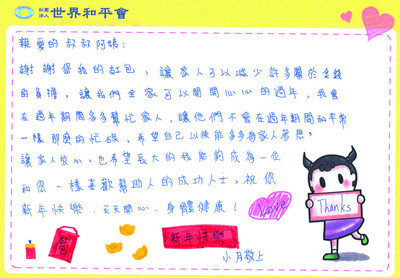 社團法人 世界和平會
親愛的叔叔阿姨:
謝謝您我的紅包,讓家人可以減少許多關於金錢
的負擔,讓我們全家可以開開心心的過年,我會
在過年期間多多幫忙家人,讓他們不會在過年期間和平常
一樣那麼的忙碌,希望自己以後能多多為家人著想,
讓家人放心,也希望長大的我能夠成為一位
和您一樣喜歡幫助人的成功人士,祝您
新年快樂、天天開心、身體健康!
Love
Thanks
紅包
新年快樂
小月敬上